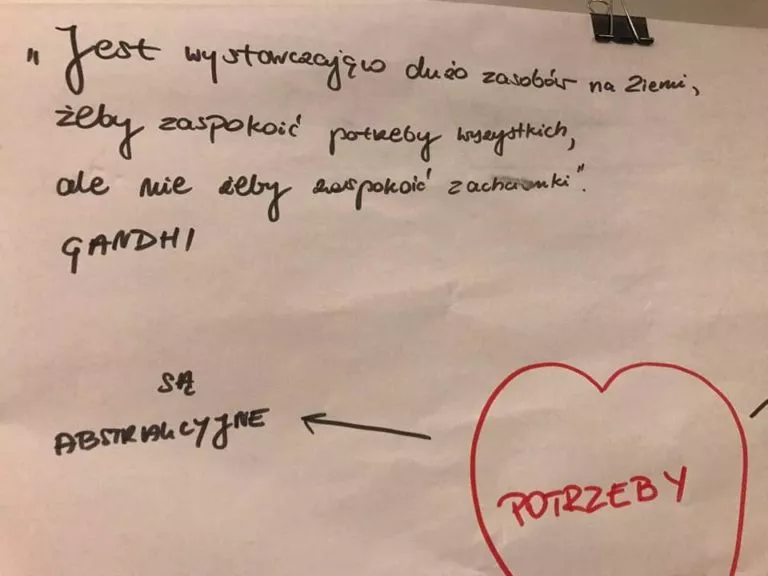 „Jest wystarczająco dużo zasobów na Ziemi,
żeby zaspokoić potrzeby wszystkich,
ale nie żeby zaspokoić zachcianki”.
GANDHI
SĄ
ABSTRAKCYJNE
POTRZEBY